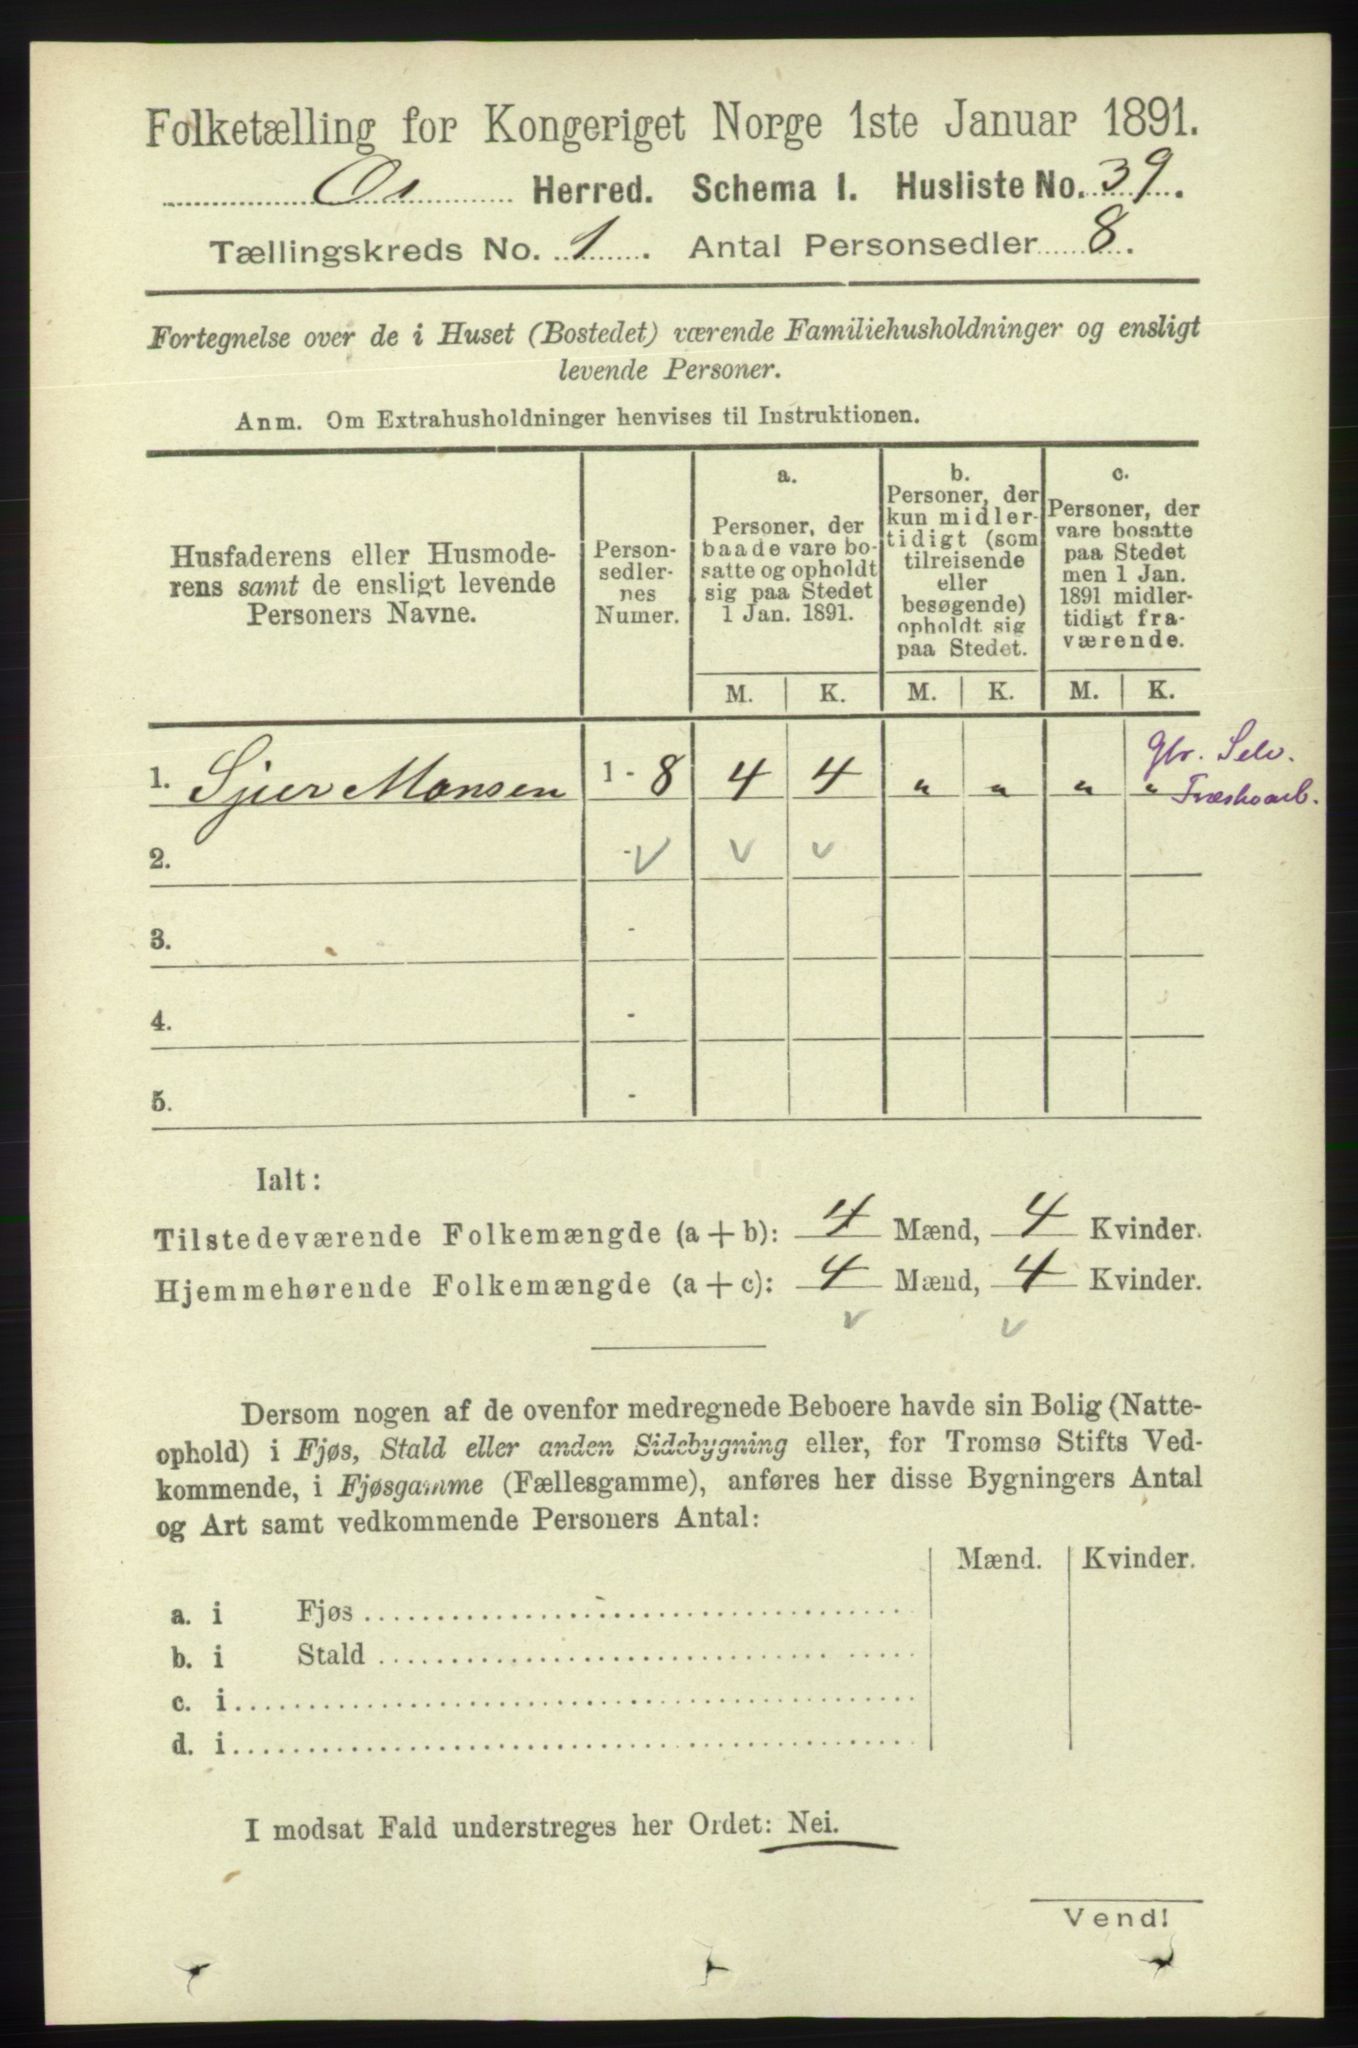 Folketælling for Kongeriget Norge 1ste Januar 1891.
Os Herred. Schema I. Husliste No. 39.
Tællingskreds No. 1. Antal Personsedler 8.
Fortegnelse over de i Huset (Bostedet) værende Familiehusholdninger og ensligt
levende Personer.
Anm. Om Extrahusholdninger henvises til Instruktionen.
Husfaderens eller Husmode-
rens samt de ensligt levende
Personers Navne.
Person-
sedler-
nes
Numer.
a.
Personer, der
baade vare bo-
satte og opholdt
sig paa Stedet
1 Jan. 1891.
b.
Personer, der
kun midler-
tidigt (som
tilreisende
eller
besøgende)
opholdt sig
paa Stedet.
c.
Personer, der
vare bosatte
paa Stedet
men 1 Jan.
1891 midler-
tidigt fra-
værende.
M. K. M. K. M. K.
Gbr. Selv.
1. Sjur Monsen 1 - 8 4 4 „ „ „ „ Træskoarb.
2. - v v v
3. -
4. -
5. -
Ialt:
Tilstedeværende Folkemængde (a + b): 4 Mænd, 4 Kvinder.
Hjemmehørende Folkemængde (a + c): 4 Mænd, 4 Kvinder.
v v
Dersom nogen af de ovenfor medregnede Beboere havde sin Bolig (Natte-
ophold) i Fjøs, Stald eller anden Sidebygning eller, for Tromsø Stifts Ved-
kommende, i Fjøsgamme (Fællesgamme), anføres her disse Bygningers Antal
og Art samt vedkommende Personers Antal:
Mænd. Kvinder.
a. i Fjøs
b. i Stald
c. i
d. i
I modsat Fald understreges her Ordet: Nei.
Vend!